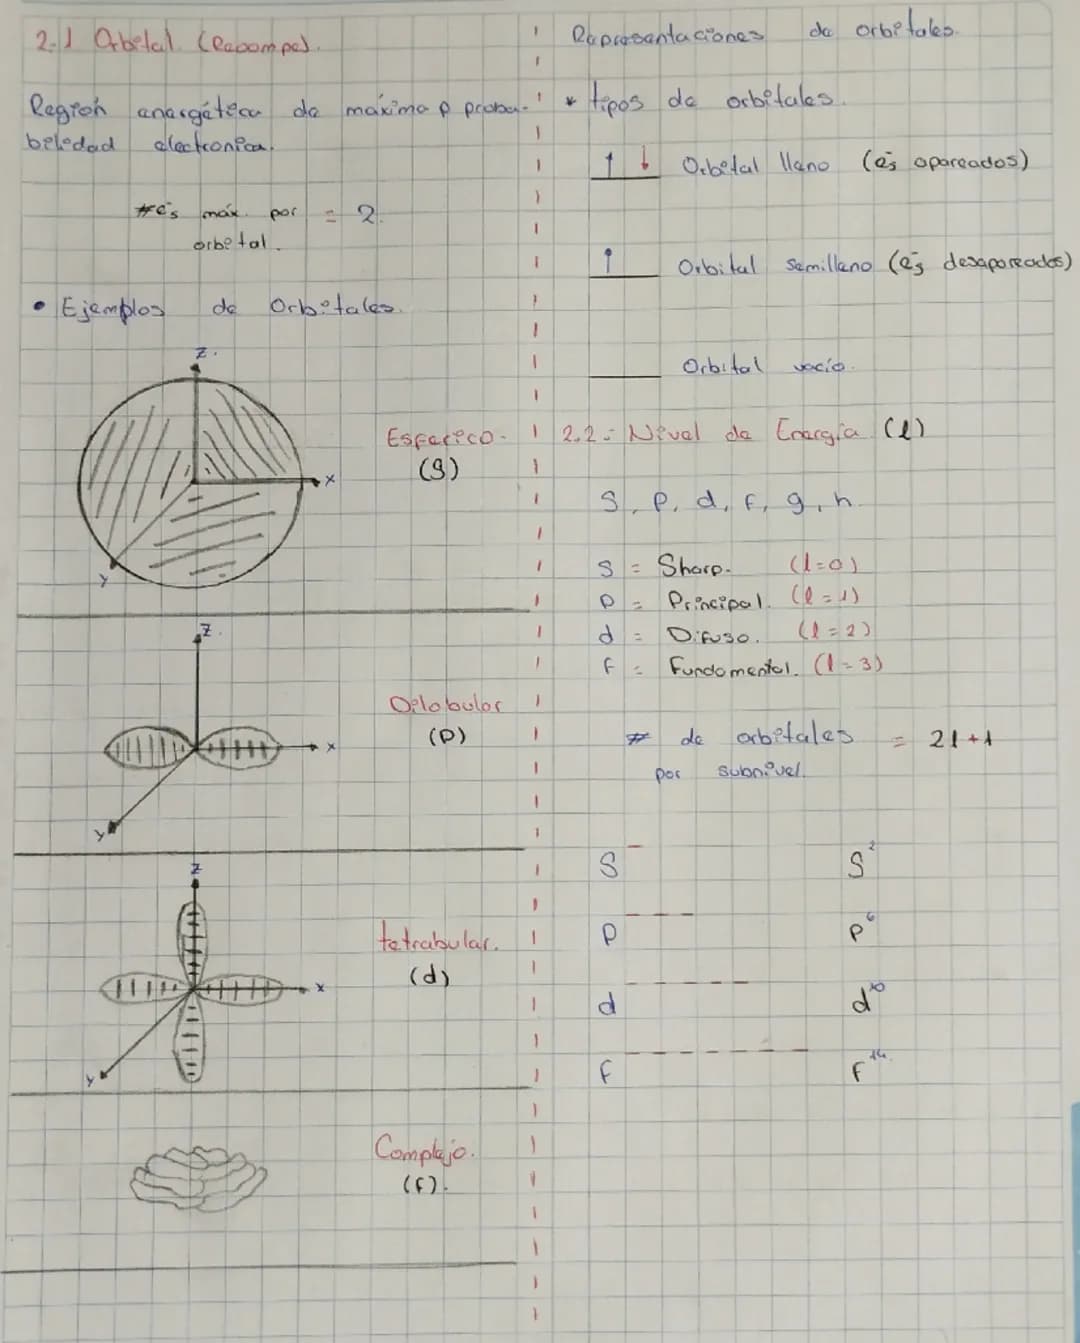 2.1 Orbital (Reeompe).
Región energética de máxima p proba-
bilidad electronica.
#e's máx. por = 2.
orbital.
• Ejemplos de Orbitales.
z.
x
y
Esferico.
(S)
z.
x
y
Dilobular
(p)
z
x
y
tetrabular.
(d)
Complejo.
(f).
Representaciones de orbitales.
* tipos de orbitales.
Orbital lleno (e's apareados)
Orbital semilleno (e's desapareados)
Orbital vacío.
2.2.- Nivel de Energía (l)
S, p, d, f, g, h.
S = Sharp. (l=0)
p = Principal. (l=1)
d = Difuso. (l=2)
f = Fundamental. (l=3)
# de orbitales = 2l+1
por subnivel.
S S²
p p⁶
d d¹⁰
f f¹⁴.